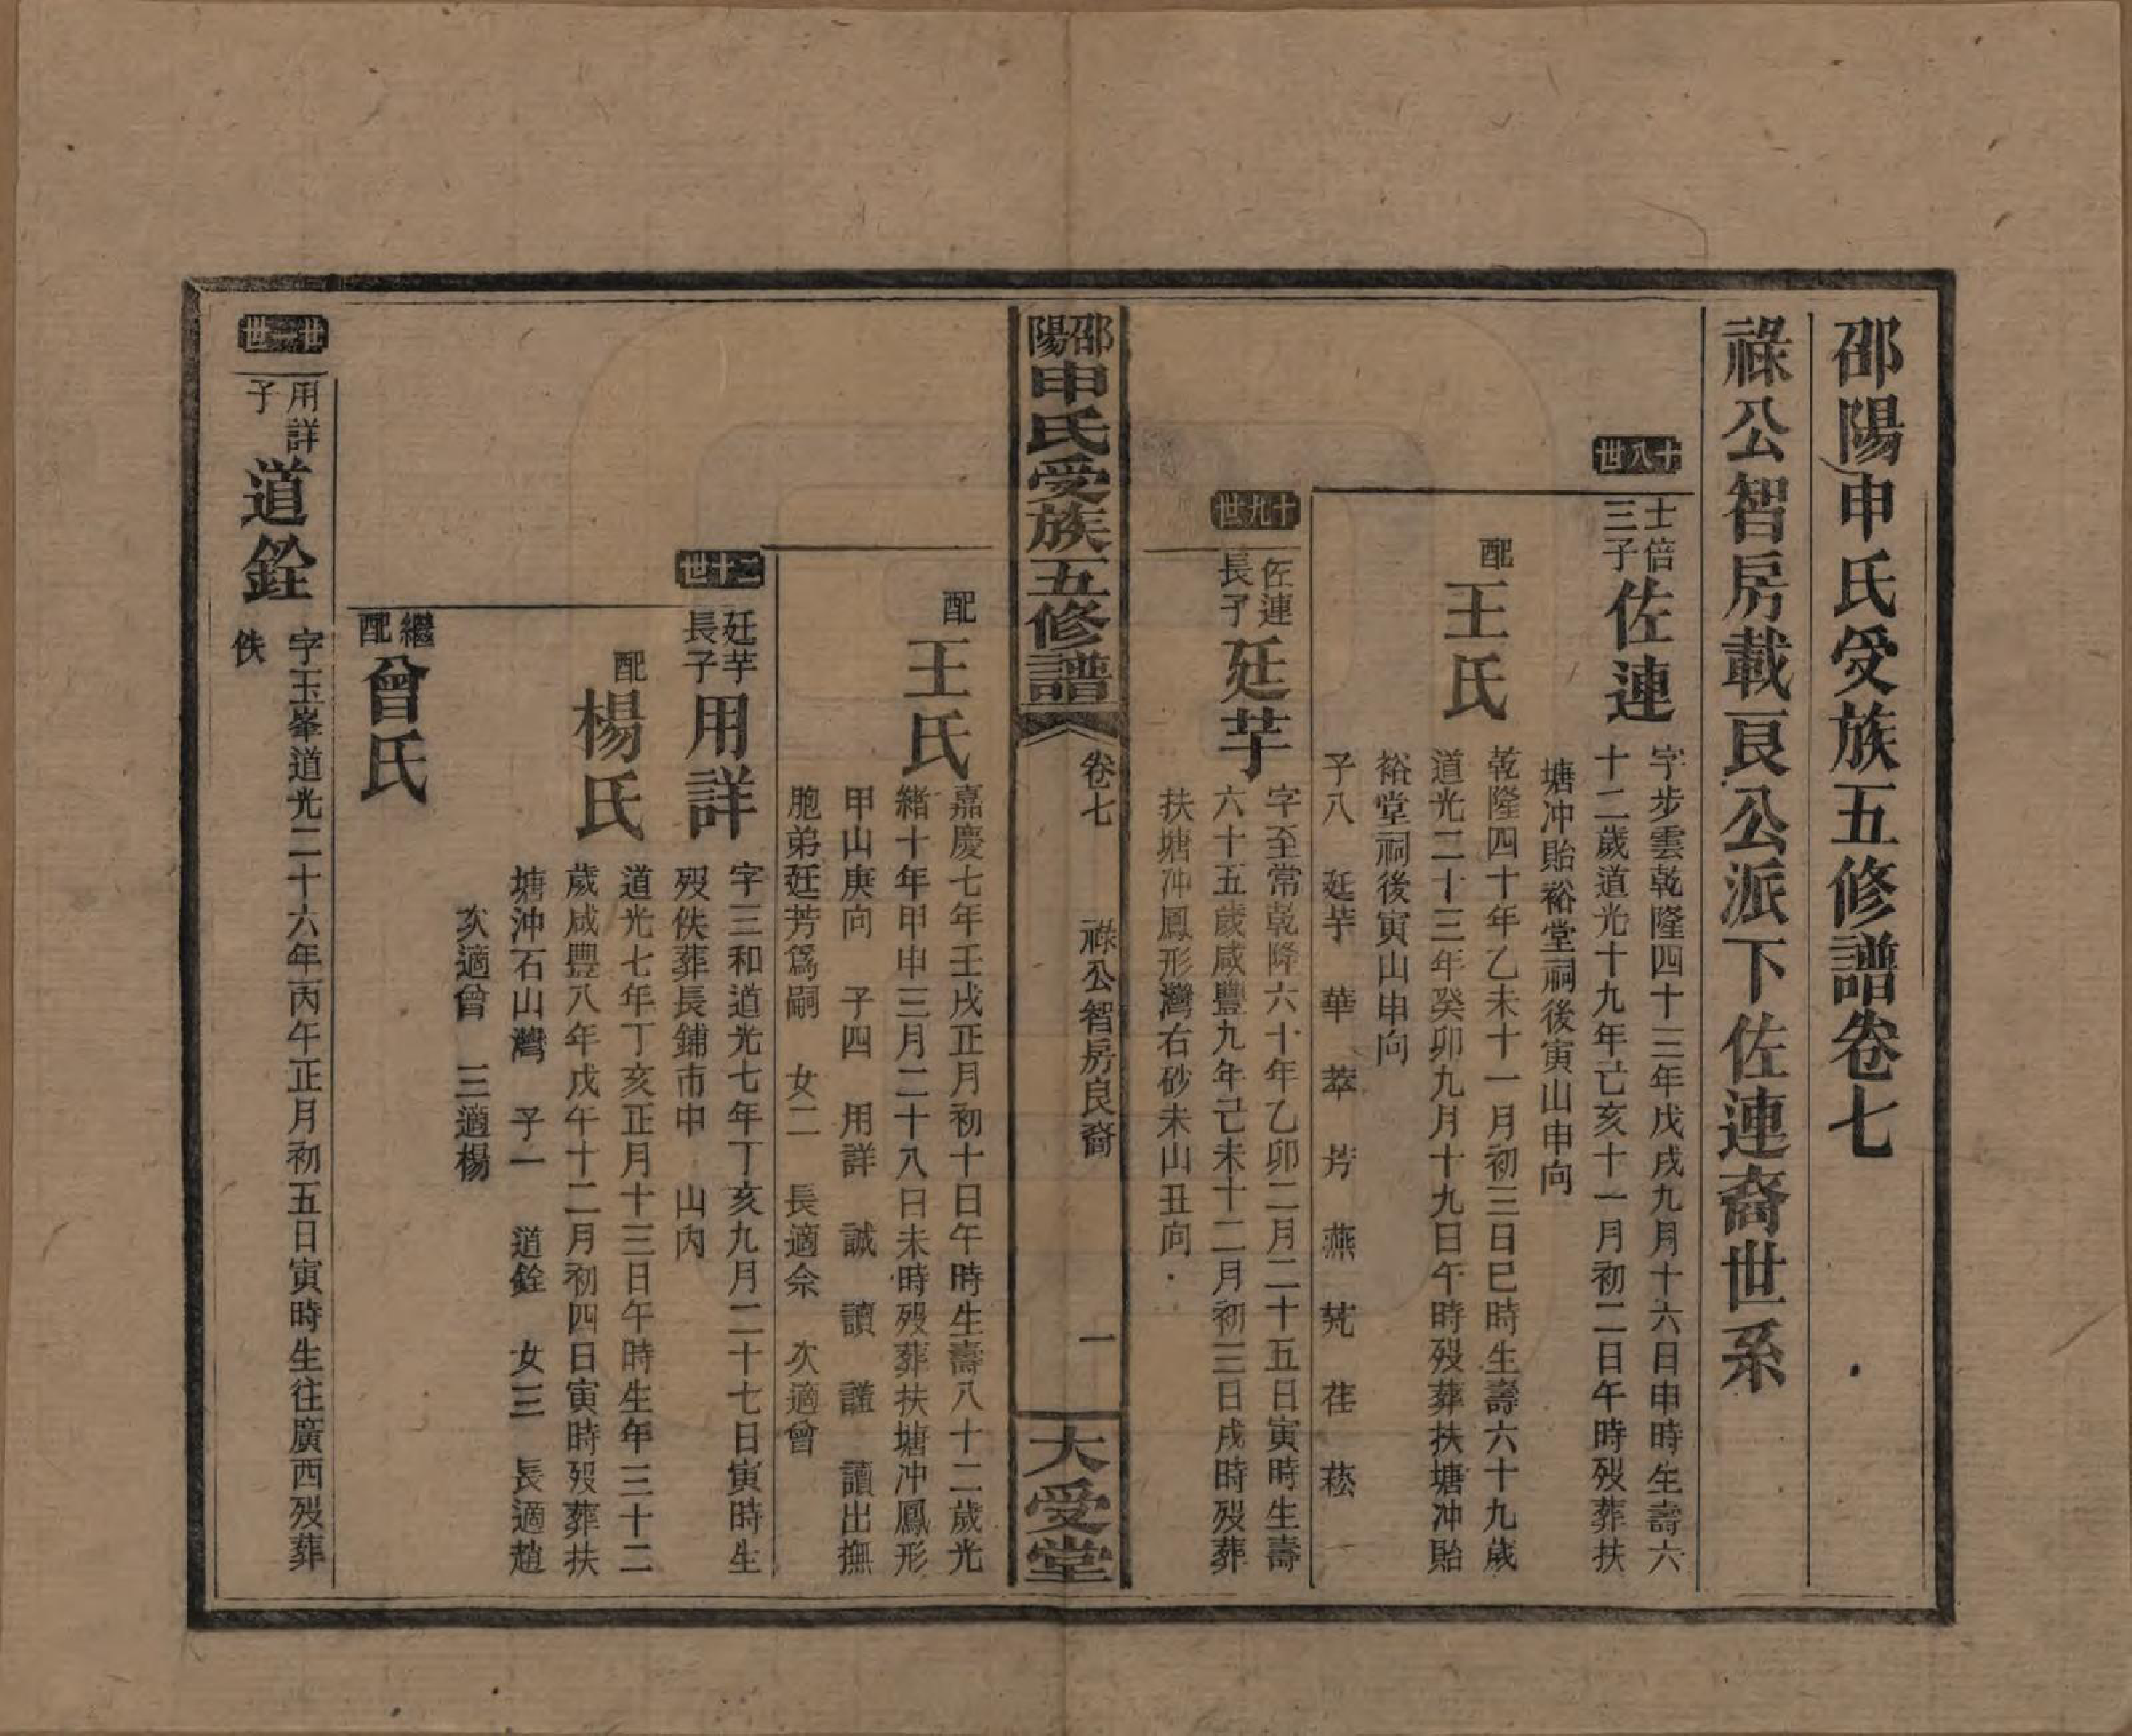 邵陽申氏受族五修譜卷七
祿公智房載良公派下佐連裔世系
十八世
士倍三子
佐連
字步雲乾隆四十三年戊戌九月十六日申時生壽六
十二歲道光十九年己亥十一月初二日午時歿葬扶
塘冲貽裕堂祠後寅山申向
配
王氏
乾隆四十年乙未十一月初三日巳時生壽六十九歲
道光二十三年癸卯九月十九日午時歿葬扶塘冲貽
裕堂祠後寅山申向
子八 廷芋 華 萃 芳 燕 芃 茬 菘
十九世
佐連長子
廷芋
字至常乾隆六十年乙卯二月二十五日寅時生壽
六十五歲咸豐九年己未十二月初三日戌時歿葬
扶塘冲鳳形灣右砂未山丑向
邵陽申氏受族五修譜
卷七
祿公智房良裔
一
大受堂
配
王氏
嘉慶七年壬戌正月初十日午時生壽八十二歲光
緒十年甲申三月二十八日未時歿葬扶塘冲鳳形
甲山庚向 子四 用詳 誠 讀 謹 讀出撫
胞弟廷芳爲嗣 女二 長適佘 次適曾
二十世
廷芋長子
用詳
字三和道光七年丁亥九月二十七日寅時生
歿佚葬長鋪市中 山內
配
楊氏
道光七年丁亥正月十三日午時生年三十二
歲咸豐八年戊午十二月初四日寅時歿葬扶
塘沖石山灣 子一 道銓 女三 長適趙
次適曾 三適楊
繼配
曾氏
廿一世
用詳子
道銓
字玉峯道光二十六年丙午正月初五日寅時生往廣西歿葬
佚